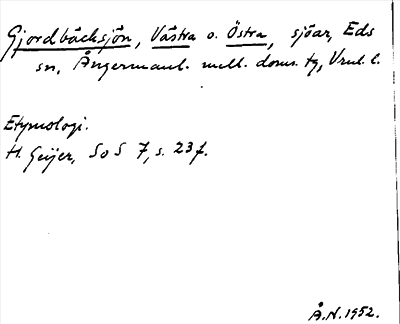 Gjordbäcksjön, Västra o. Östra, sjöar, Eds
sn, Ångermanl. mell. doms. tg, Vnrl. l.
Etymologi.
H. Geijer, SoS 7, s. 23 f.
Å.N. 1952.